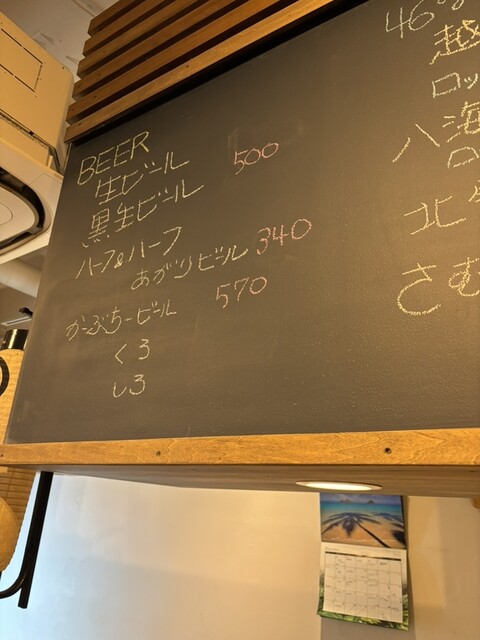 BEER
生ビール 500
黒生ビール
ハーフ&ハーフ
あがりビール 340
がーぶちービール 570
くろ
しろ
46
越
ロッ
八海
ロ
北
さむ